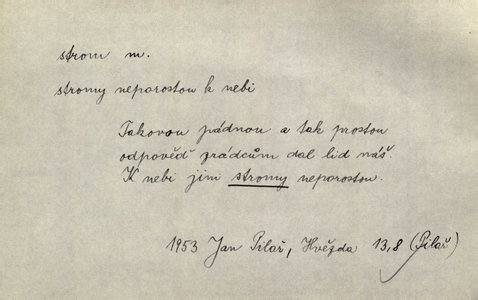 strom m.
stromy neporostou k nebi
Takovou pádnou a tak prostou
odpověď zrádcům dal lid náš.
K nebi jim stromy neporostou.
1953 Jan Pilař, Hvězda 13,8 (Pilař)